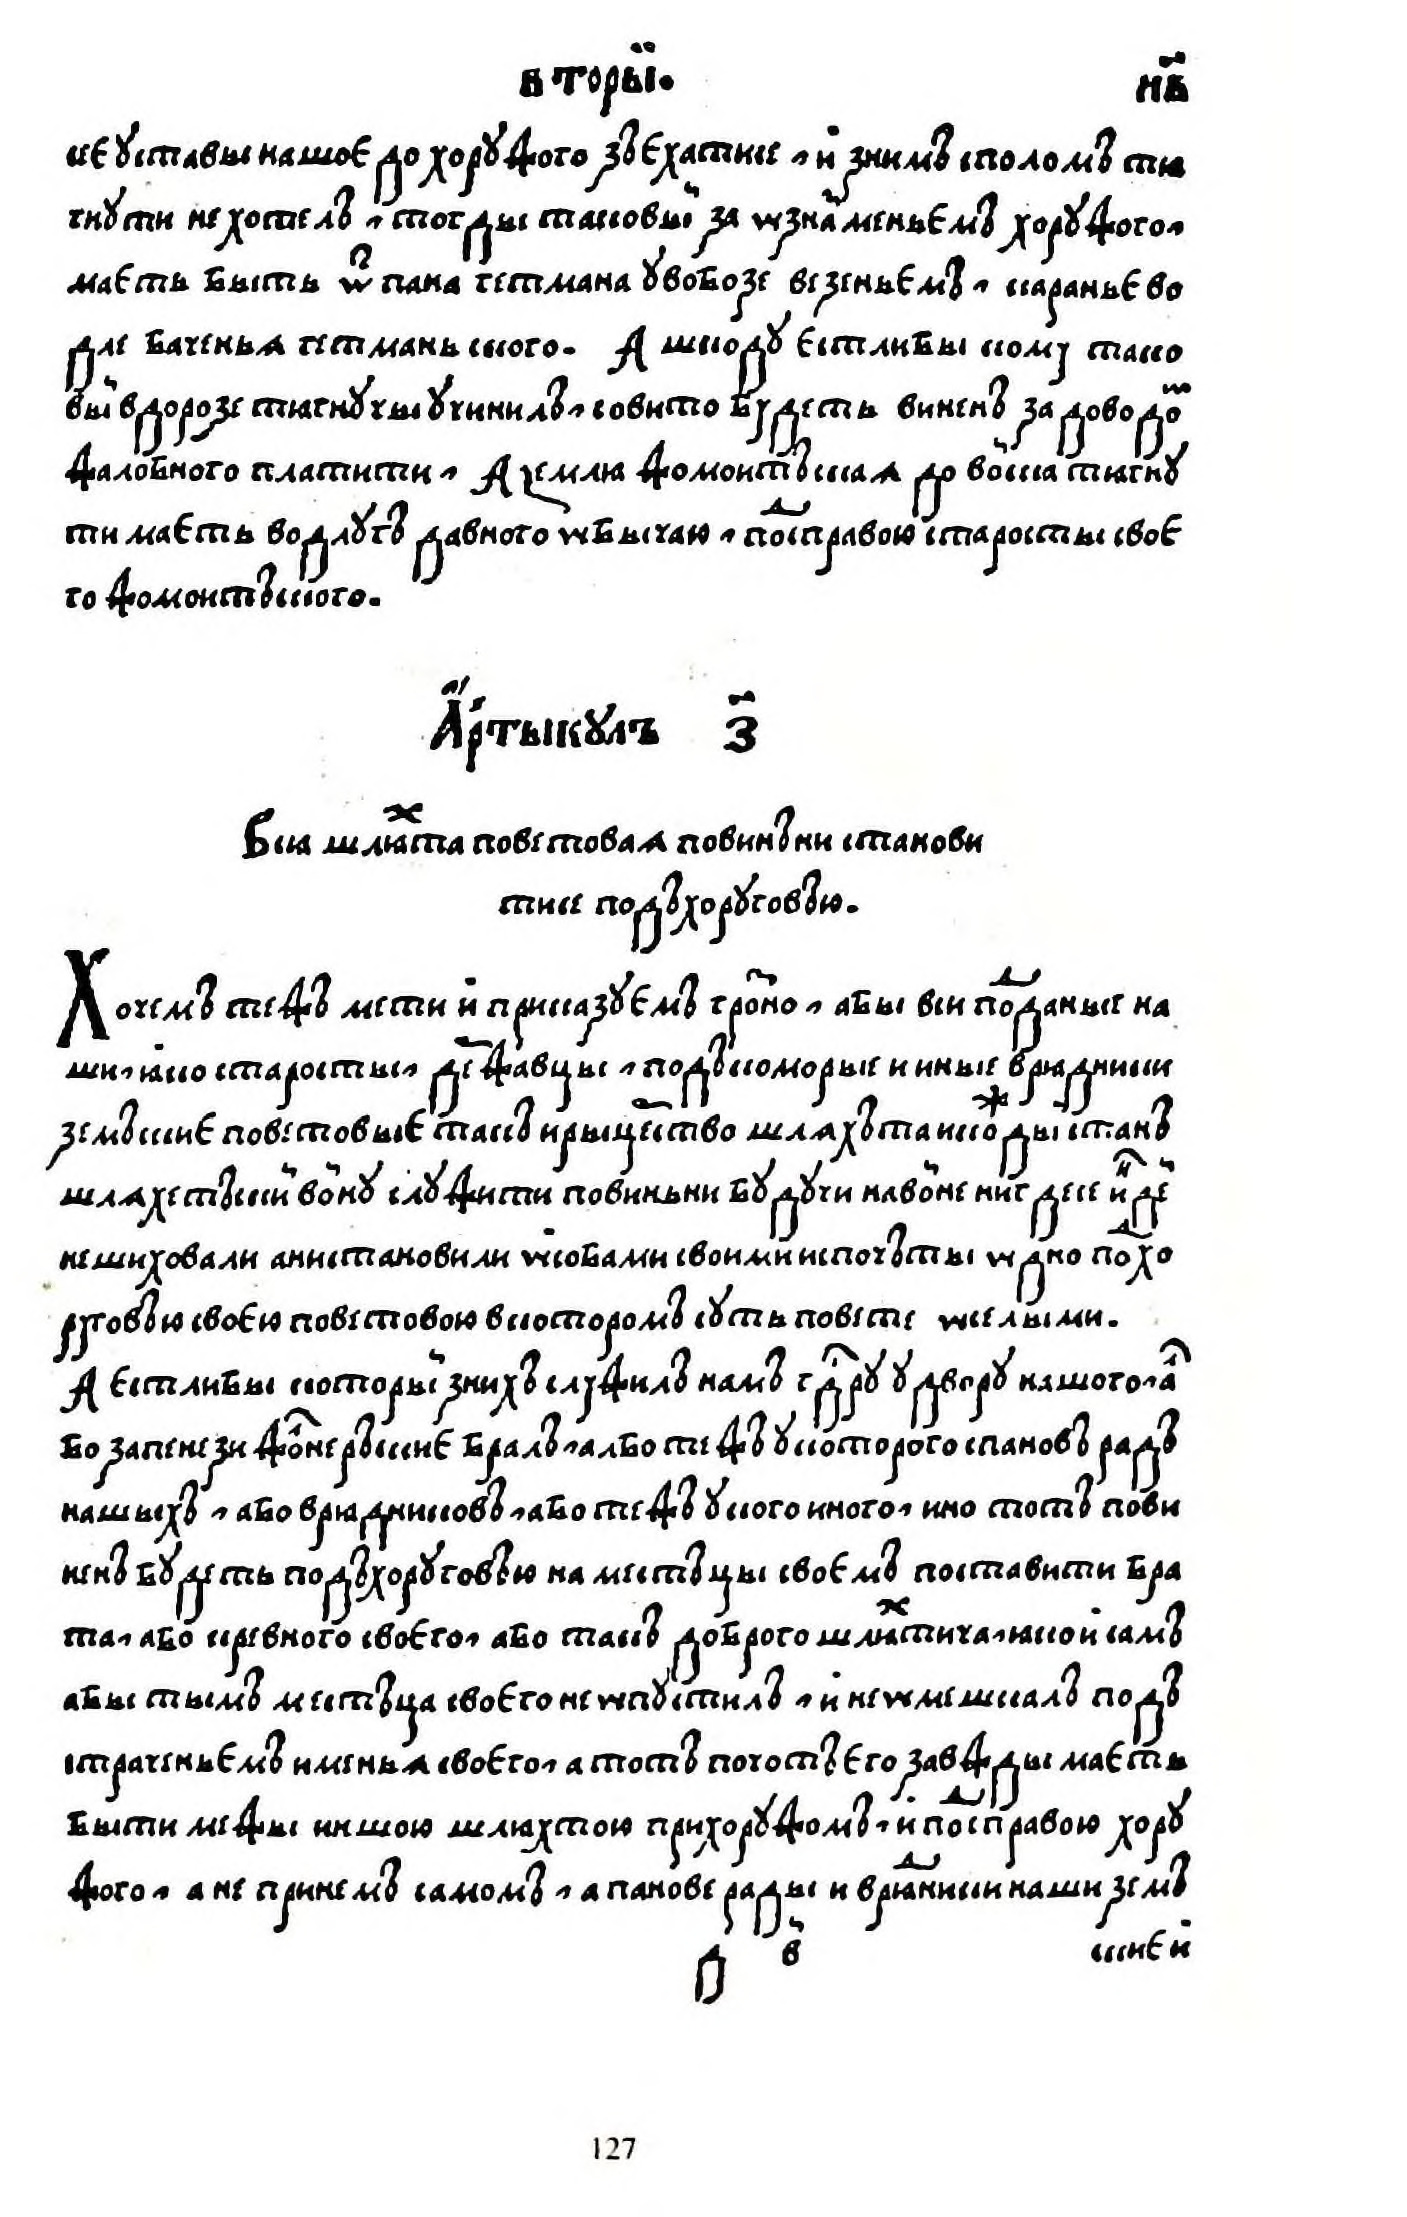 вторыӥ. н҃в
ке уставы нашое до хоружого зъехатисе, и знимъ споломъ тя
гнути не хотелъ, тогды таковыӥ за ѡзнаⷨменьемъ хоружого,
маеть быть ѿ пана гетмана у вобозе везеньемъ, караньє во
дле баченья гетманьского. А шкоду естлибы кому тако
выӥ вдорозе тягнучы учинилъ, совито будеть виненъ за доводоⷨ
жалобного платити, А земля жомоитъская до воӥска тягну
ти маєть водлугъ давного ѡбычаю, поⷣсправою старосты своє
го жомоитъского.
Артыкулъ з҃
Вся шляⷯта поветовая повинъни станови
тисе подъхоруговъю.
Хочемъ тежъ мети и приказуємъ гроⷥно, абы вси поⷣданые на
ши, яко старосты, деⷬжавцы, подъкоморые и иные врядники
земъскиє поветовыє такъ ирыцеⷬство шляхъта икоⷤды станъ
шляхетъскиӥ воӥну служити повиньни будучи навоӥне нигдесе иⷩдеӥ
нешиховали анистановили ѡсобами своими испочъты ѡдно поⷣхо
руговъю своєю поветовою вкоторомъ суть повете ѡселыми.
А єстлибы которыӥ знихъ служилъ намъ гⷭдру у двору нашого, аⷧ
бо запенези жоⷧнеръскиє бралъ, албо тежъ укоторого спановъ радъ
нашыхъ, або врядниковъ, або тежъ укого иного, ино тотъ пови
ненъ будеть подъхоруговъю на местъцы своємъ поставити бра
та, або кревного своєго, або такъ доброго шляⷯтича, яко и самъ
абы тымъ местъца своєго неѡпустилъ, и неѡмешкалъ подъ
страченьємъ именья своєго, а тотъ почотъ єго завжды маєть
быти межы иншою шляхтою прихоружомъ, и поⷣсправою хору
жого, а не принемъ самомъ, а панове рады и вряⷣники наши земъ
д в҃ скиє и
127